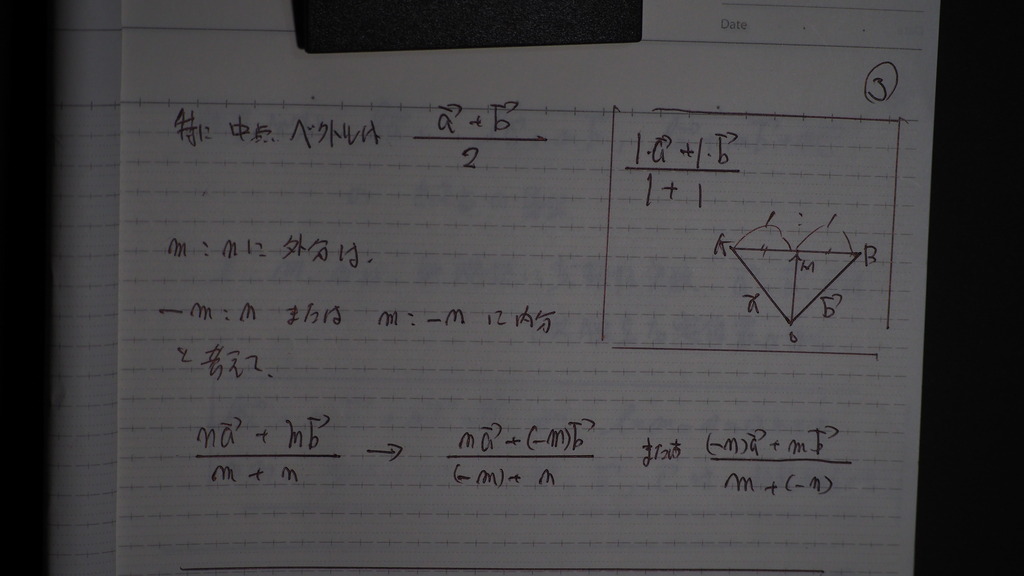 Date
③
特に 中点 ベクトルは (a→ + b→)/2
(1・a→ + 1・b→)/(1 + 1)
1 : 1
A M B
a→ b→
O
m : n に 外分は、
-m : n または m : -n に内分
と考えて、
(na→ + mb→)/(m + n) → (na→ + (-m)b→)/((-m) + n) または ((-n)a→ + mb→)/(m + (-n))